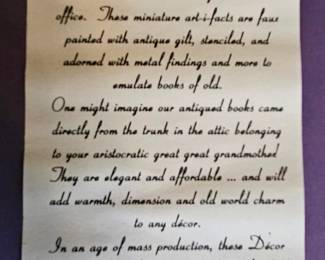 office. These miniature art-i-facts are faux
painted with antique gilt, stenciled, and
adorned with metal findings and more to
emulate books of old.
One might imagine our antiqued books came
directly from the trunk in the attic belonging
to your aristocratic great great grandmother!
They are elegant and affordable ... and will
add warmth, dimension and old world charm
to any décor.
In an age of mass production, these Décor